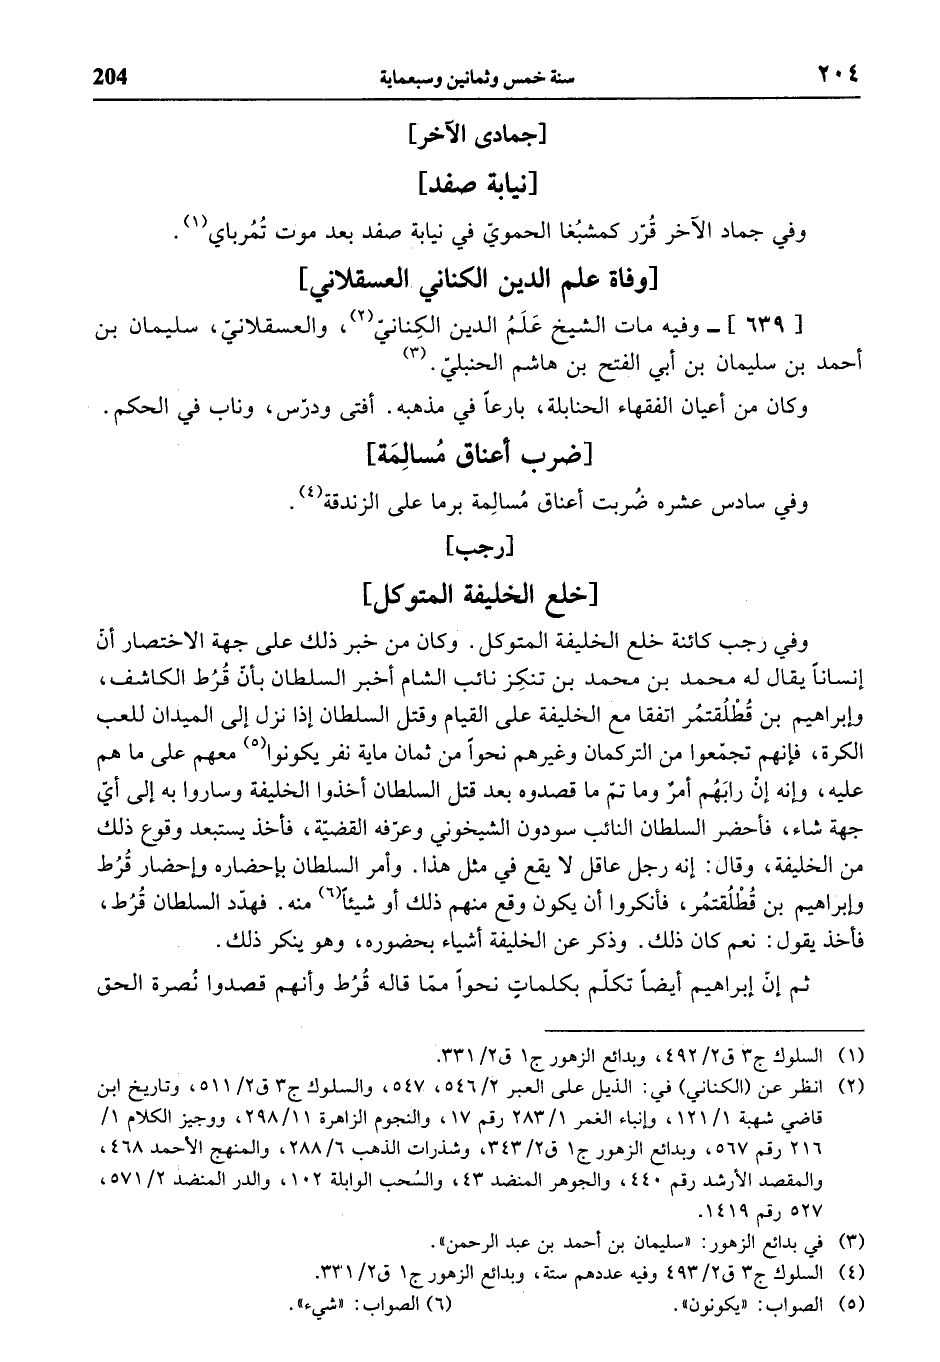 ٢٠٤ سنة خمس وثمانين وسبعماية 204
[جمادى الآخر]
[نيابة صفد]
وفي جماد الآخر قُرّر كمشبُغا الحمويّ في نيابة صفد بعد موت تمُرباي(١).
[وفاة علم الدين الكناني العسقلاني]
[ ٦٣٩ ] ـ وفيه مات الشيخ عَلَمُ الدين الكِنانيّ(٢)، والعسقلانيّ، سليمان بن
أحمد بن سليمان بن أبي الفتح بن هاشم الحنبليّ.(٣)
وكان من أعيان الفقهاء الحنابلة، بارعاً في مذهبه. أفتى ودرّس، وناب في الحكم.
[ضرب أعناق مُسالِمَة]
وفي سادس عشره ضُربت أعناق مُسالِمة برما على الزندقة(٤).
[رجب]
[خلع الخليفة المتوكل]
وفي رجب كائنة خلع الخليفة المتوكل. وكان من خبر ذلك على جهة الاختصار أنّ
إنساناً يقال له محمد بن محمد بن تنكِز نائب الشام أخبر السلطان بأنّ قُرُط الكاشف،
وإبراهيم بن قُطْلُقتمُر اتفقا مع الخليفة على القيام وقتل السلطان إذا نزل إلى الميدان للعب
الكرة، فإنهم تجمّعوا من التركمان وغيرهم نحواً من ثمان ماية نفر يكونوا(٥) معهم على ما هم
عليه، وإنه إنْ رابَهُم أمرٌ وما تمّ ما قصدوه بعد قتل السلطان أخذوا الخليفة وساروا به إلى أيّ
جهة شاء، فأحضر السلطان النائب سودون الشيخوني وعرّفه القضيّة، فأخذ يستبعد وقوع ذلك
من الخليفة، وقال: إنه رجل عاقل لا يقع في مثل هذا. وأمر السلطان بإحضاره وإحضار قُرُط
وإبراهيم بن قُطْلُقتمُر، فأنكروا أن يكون وقع منهم ذلك أو شيئاً(٦) منه. فهدّد السلطان قُرُط،
فأخذ يقول: نعم كان ذلك. وذكر عن الخليفة أشياء بحضوره، وهو ينكر ذلك.
ثم إنّ إبراهيم أيضاً تكلّم بكلماتٍ نحواً ممّا قاله قُرُط وأنهم قصدوا نُصرة الحق
(١) السلوك ج٣ ق٢/ ٤٩٢، وبدائع الزهور ج١ ق٢/ ٣٣١.
(٢) انظر عن (الكناني) في: الذيل على العبر ٢/ ٥٤٦، ٥٤٧، والسلوك ج٣ ق٢/ ٥١١، وتاريخ ابن
قاضي شهبة ١/ ١٢١، وإنباء الغمر ١/ ٢٨٣ رقم ١٧، والنجوم الزاهرة ١١/ ٢٩٨، ووجيز الكلام ١/
٢١٦ رقم ٥٦٧، وبدائع الزهور ج١ ق٢/ ٣٤٣، وشذرات الذهب ٦/ ٢٨٨، والمنهج الأحمد ٤٦٨،
والمقصد الأرشد رقم ٤٤٠، والجوهر المنضد ٤٣، والسُحب الوابلة ١٠٢، والدر المنضد ٢/ ٥٧١،
٥٢٧ رقم ١٤١٩.
(٣) في بدائع الزهور: «سليمان بن أحمد بن عبد الرحمن».
(٤) السلوك ج٣ ق٢/ ٤٩٣ وفيه عددهم ستة، وبدائع الزهور ج١ ق٢/ ٣٣١.
(٥) الصواب: «يكونون». (٦) الصواب: «شيء».